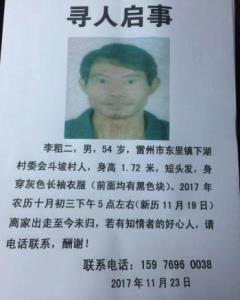 寻人启事
李粗二，男，54 岁，雷州市东里镇下湖
村委会斗坡村人，身高 1.72 米，短头发，身
穿灰色长袖衣服（前面均有黑色块）。2017 年
农历十月初三下午 5 点左右（新历 11 月 19 日）
离家出走至今未归，若有知情者的好心人，请
电话联系，酬谢！
联系电话：159 7696 0038
2017 年 11 月 23 日